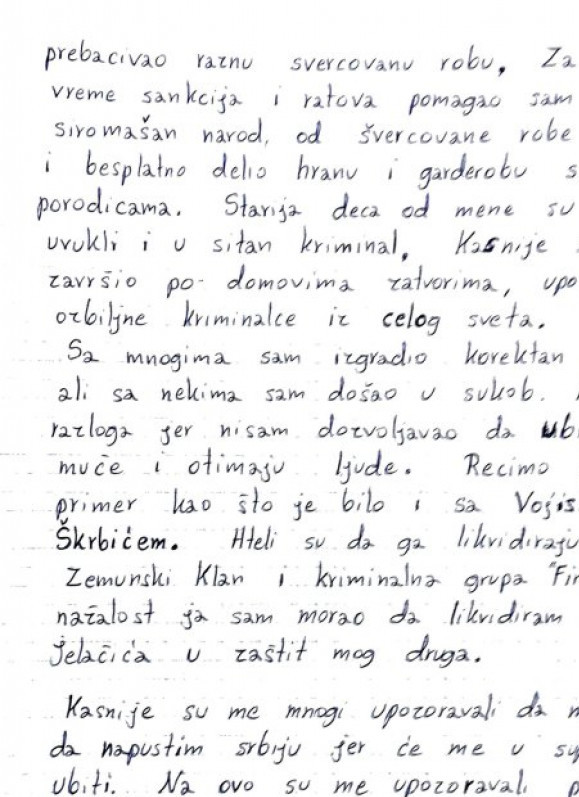 prebacivao raznu svercovanu robu. Za
vreme sankcija i ratova pomagao sam
siromašan narod, od švercovane robe
i besplatno delio hranu i garderobu s
porodicama. Starija deca od mene su
uvukli i u sitan kriminal. Kasnije
završio po domovima zatvorima, upo
ozbiljne kriminalce iz celog sveta.
Sa mnogima sam izgradio korektan
ali sa nekima sam došao u sukob.
razloga jer nisam dozvoljavao da ub
muče i otimaju ljude. Recimo
primer kao što je bilo i sa Vojis
Škrbićem. Hteli su da ga likvidiraju
Zemunski Klan i kriminalna grupa "Fir
nažalost ja sam morao da likvidiram
Jelačića u zaštit mog druga.
Kasnije su me mnogi upozoravali da n
da napustim srbiju jer će me u su
ubiti. Na ovo su me upozoravali p